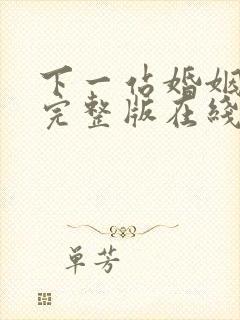 下一站婚姻
完整版在线
单芳